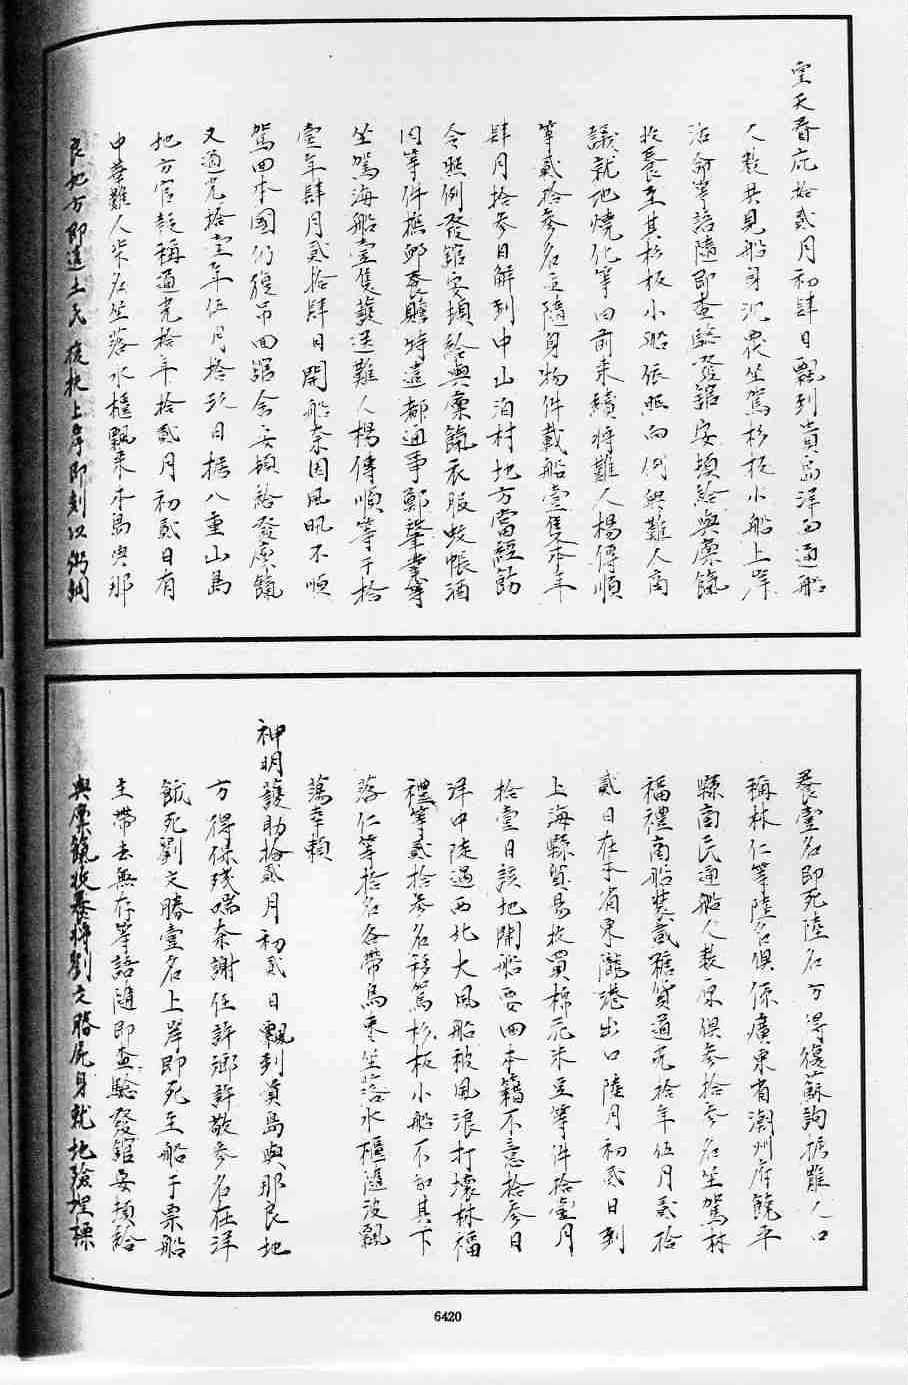 皇天眷庇拾貳月初肆日飄到貴島洋面通船
人數共見船身沉畏坐駕杉板小船上岸
活命等語隨即查驗發館安頓給與廩餼
收養至其杉板小船依照向例與難人商
議就地燒化等因前來續將難人楊傳順
等貳拾參名並隨身物件載船壹隻本年
肆月拾參日解到中山泊村地方當經飭
令照例發館安頓給與廩餼衣服蚊帳酒
肉等件撫卹養贍特遣都通事鄭擧業等
坐駕海船壹隻護送難人楊傳順等于拾
壹年肆月貳拾肆日開船奈因風汛不順
駕回本國仍復吊回館舍安頓給發廩餼
又道光拾壹年伍月拾玖日據八重山島
地方官報稱道光拾年拾貳月初貳日有
中華難人柒名坐落水櫃飄來本島與那
良地方即遣土民救扶上岸即刻以粥調
養壹名即死陸名方得復蘇詢據難人口
稱林仁等陸名俱係廣東省潮州府饒平
縣商民通船人數原俱參拾參名坐駕林
福禮商船裝載糖貨道光拾年伍月貳拾
貳日在本省東隴港出口陸月初貳日到
上海縣貿易收買棉花米豆等件拾壹月
拾壹日該地開船要回本籍不意拾參日
洋中陡遇西北大風船被風浪打壞林福
禮等貳拾參名移駕杉板小船不知其下
落仁等拾名各帶烏棗坐落水櫃隨波飄
蕩幸賴
神明護助拾貳月初貳日飄到貴島與那良地
方得保殘喘奈謝任許瑯許敬參名在洋
餓死劉文勝壹名上岸即死至船于票船
主帶去無存等語隨即查驗發館安頓給
與廩餼收養將劉文勝屍身就地殮埋標
6420